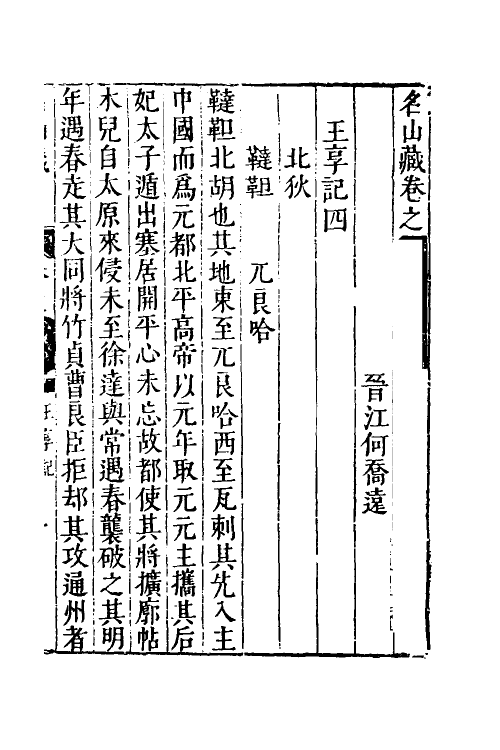 名山藏卷之
晉江何喬遠
王享記四
北狄
韃靼 兀良哈
韃靼北胡也其地東至兀良哈西至瓦剌其先入主
中國而爲元都北平高帝以元年取元元主攜其后
妃太子遁出塞居開平心未忘故都使其將擴廓帖
木兒自太原來侵未至徐達與常遇春襲破之其明
年遇春走其大同將竹貞曹良臣拒却其攻通州者
王享記